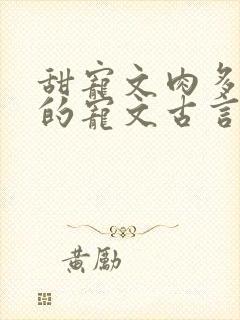 甜寵文肉多
的寵文古言
黄勵